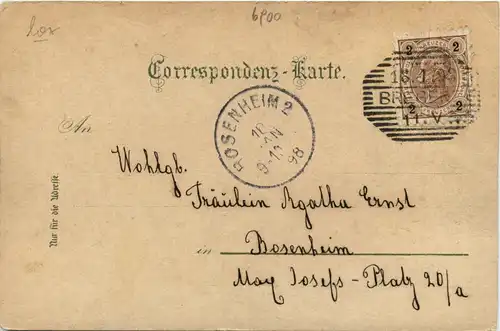 6900
Correspondenz-Karte.
2 2
2 2
16.1.
BRE
11.V.
ROSENHEIM 2
18
JAN
98
An
Wohlgb.
Fräulein Agatha Ernst
in Rosenheim
Max Josefs-Platz 20/a
Nur für die Adresse